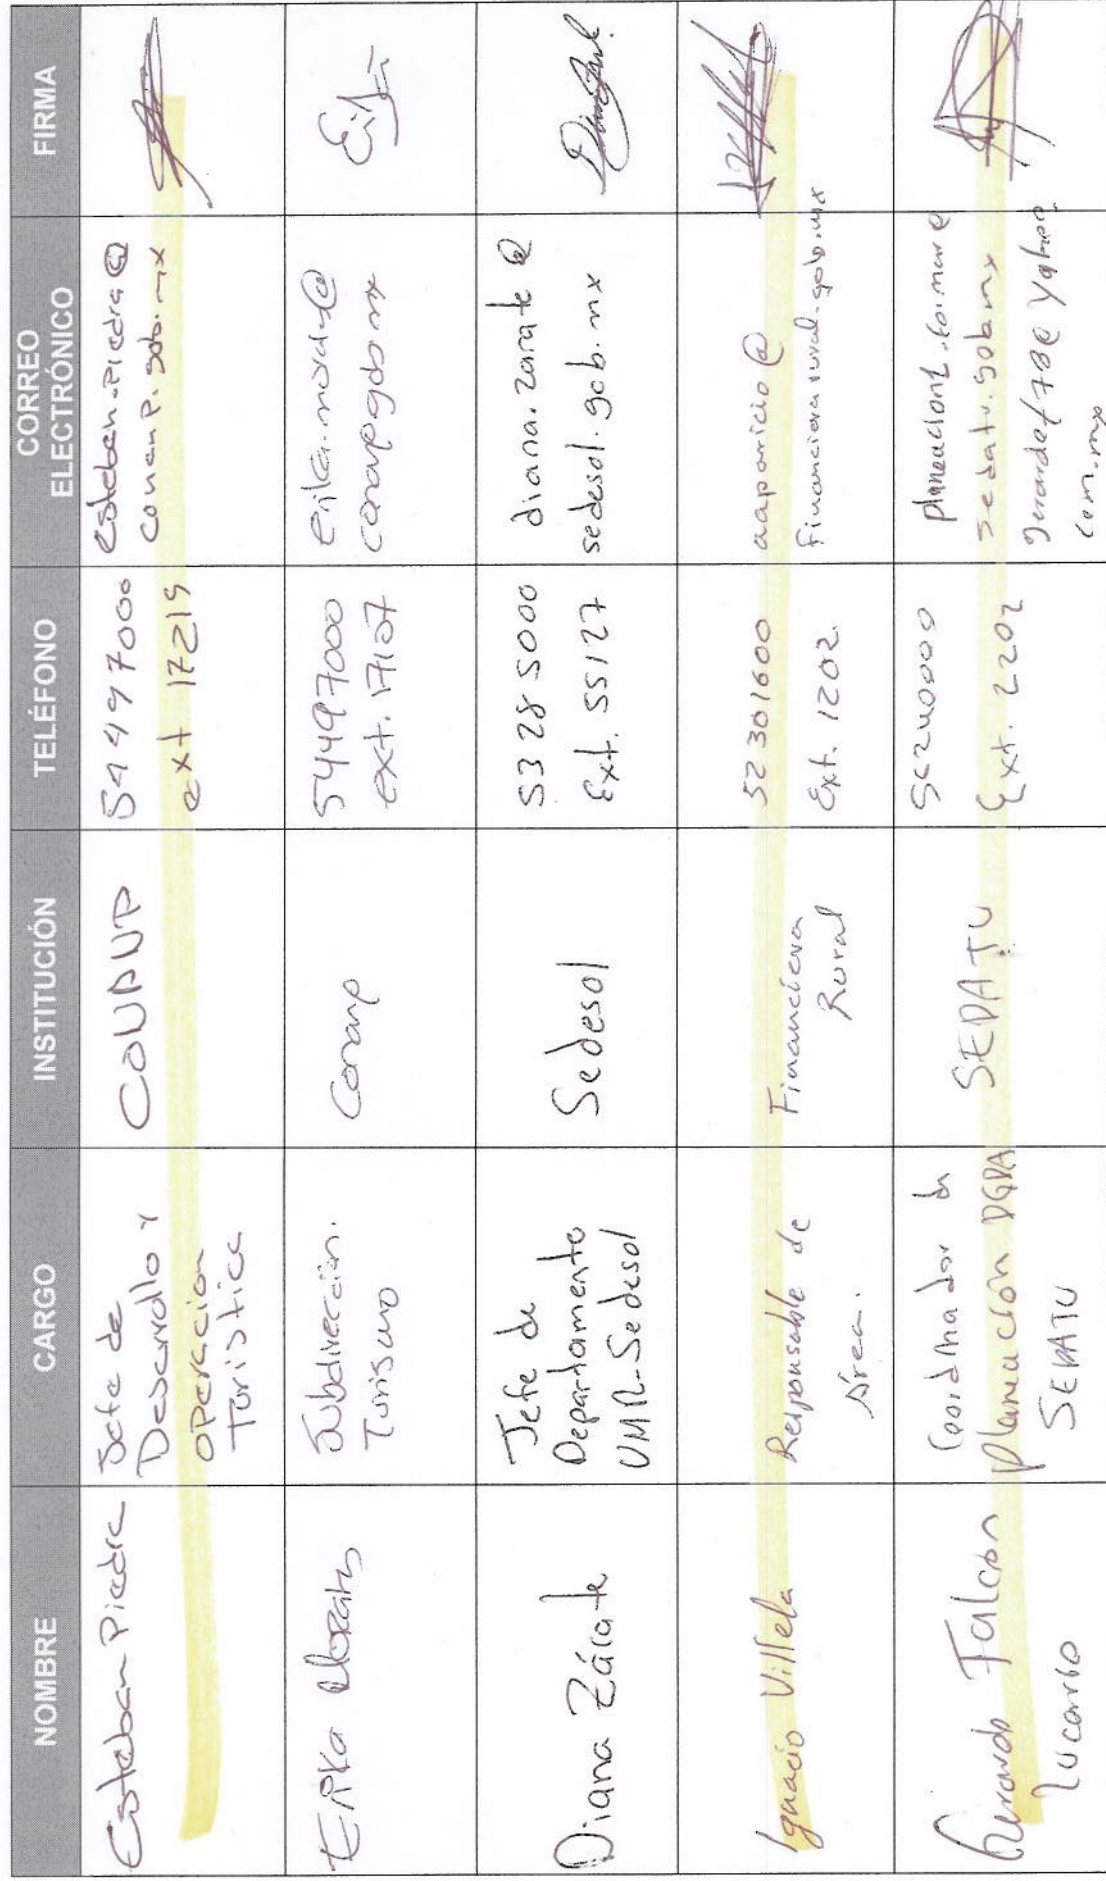 NOMBRE
CARGO
INSTITUCIÓN
TELÉFONO
CORREO
ELECTRÓNICO
FIRMA
Esteban Piedra
Jefe de
Desarrollo y
operacion
Turistica
CONANP
54497000
ext 17219
esteban.piedra@
conanp.gob.mx
Erika
Subdirección.
Turismo
Conanp
54497000
ext. 17107
conanp.gob.mx
Diana Zárate
Jefe de
Departamento
UMR-Sedesol
Sedesol
5328 5000
Ext. 55127
diana.zarate@
sedesol.gob.mx
Ignacio Villela
Responsable de
Área.
Financiera
Rural
52301600
Ext. 1202.
aaparicio@
financierarural.gob.mx
Gerardo Falcon
Lucario
Coordinador de
planeación DGPA
SEDATU
SEDATU
Ext. 2202
sedatu.gob.mx
com.mx